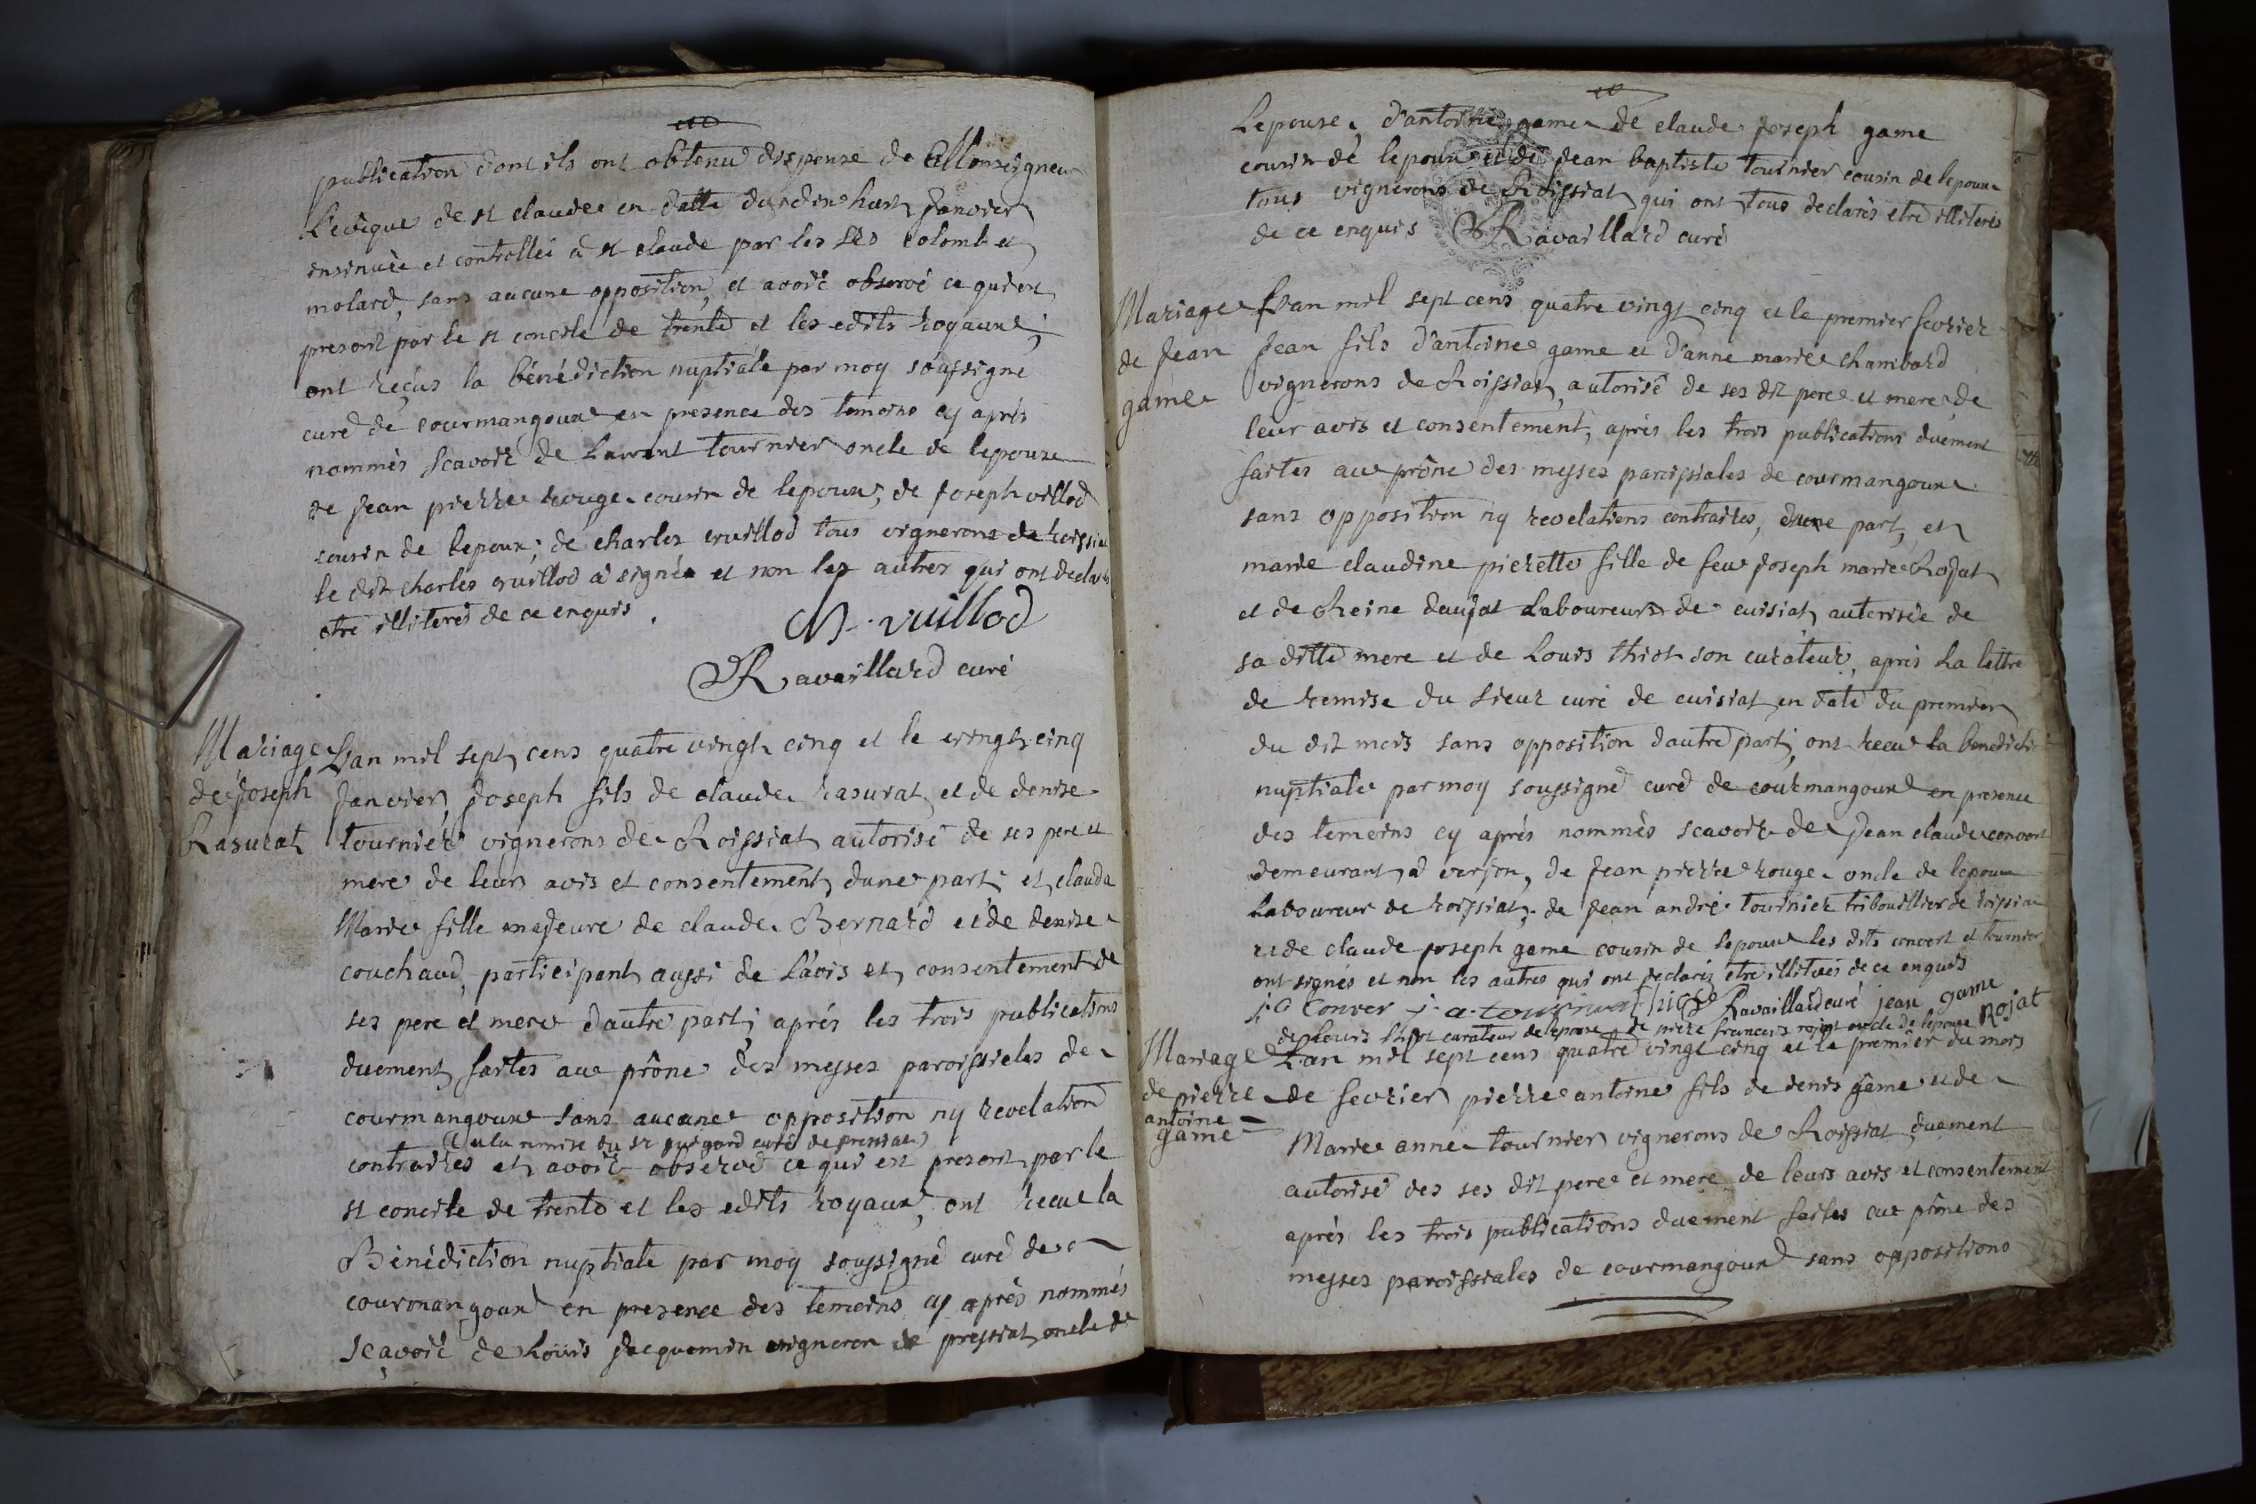 publication dont ils ont obtenu dispense de Monseigneur
L'evêque de st claude en datte du dix huit janvier
insinuée et controlléi à st claude par les srs colomb et
molard, sans aucune opposition, et avoir observé ce qui est
prescrit par le st concile de trente et les edits royaux;
ont reçus la bénédiction nuptiale par moy soussigné
curé de courmangoux en presence des temoins cy après
nommés scavoir de Laurent tournier oncle de lepouse
de jean pierre rouge cousin de lepoux, de joseph villod
cousin de lepoux; de charles vuillod tous vignerons de roissiat
le dit charles vuillod a signé et non les autres qui ont declaré
etre illiteres de ce enquis.
Ch. vuillod
Ravaillard curé
Mariage
de joseph
Rasurat
L'an mil sept cens quatre vingt cinq et le vingt cinq
janvier, joseph fils de claude rasurat et de denise
tournier vignerons de Roissiat autorisé de ses pere et
mere de leurs avis et consentement, dune part; et clauda
Marie fille majeure de claude Bernard et de denise
couchaud, participant aussi de l'avis et consentement de
ses pere et mere d'autre part; aprés les trois publications
duement faites au prône des messes paroissieles de
courmangoux sans aucune opposition ny revelation
(et la remise du sr curé de pressiat)
contraires et avoir observé ce qui est prescrit par le
st concile de trente et les edits royaux, ont recue la
Bénédiction nuptiale par moy soussigné curé de
courmangoux en presence des temoins cy après nommés
sçavoir de Louis jacquemin vigneron de pressiat oncle de
Lepouse, d'antoine game de claude joseph game
cousin de lepoux et de jean baptiste tournier cousin de lepoux
tous vignerons de Roissiat qui ont tous declarés etre illiterés
de ce enquis Ravaillard curé
Mariage
de jean
game
L'an mil sept cens quatre vingt cinq et le premier fevrier
jean fils d'antoine game et d'anne marie chambard
vignerons de Roissiat, autorisé de ses dit pere et mere de
leur avis et consentement, aprés les trois publications duément
faites au prône des messes paroissiales de courmangoux
sans opposition ny revelations contraires, dune part, et
marie claudine pierette fille de feu joseph marie Rojat
et de Reine daujat Laboureurs de cuisiat, autorisée de
sa ditte mere et de Louis thiot son curateur, aprés la lettre
de remise du sieur curé de cuisiat en date du premier
du dit mois sans opposition dautre part, ont recu la benedicti
nuptiale par moy soussigné curé de courmangoux en presence
des temoins cy aprés nommés scavoir de jean claude convert
demeurant à verjon, de jean pierre rouge oncle de lepoux
Laboureur de roissiat, de jean andré tournier tribouillier de roissiat
et de claude joseph game cousin de lepoux les dits convert et tournier
ont signés et non les autres qui ont declarés etre illiterés de ce enquis
j. c Conver j. a. tournier thiot Ravaillard curé jean game
de Louis thiot curateur de lepouse de pierre francois rojat oncle de lepouse Rojat
Mariage
de pierre
antoine
game
L'an mil sept cens quatre vingt cinq et le premier du mois
de fevrier pierre antoine fils de denis game et de
Marie anne tournier vignerons de Roissiat duement
autorisé des ses dit pere et mere de leurs avis et consentement
aprés les trois publications duement faites au prône des
messes paroissiales de courmangoux sans oppositions